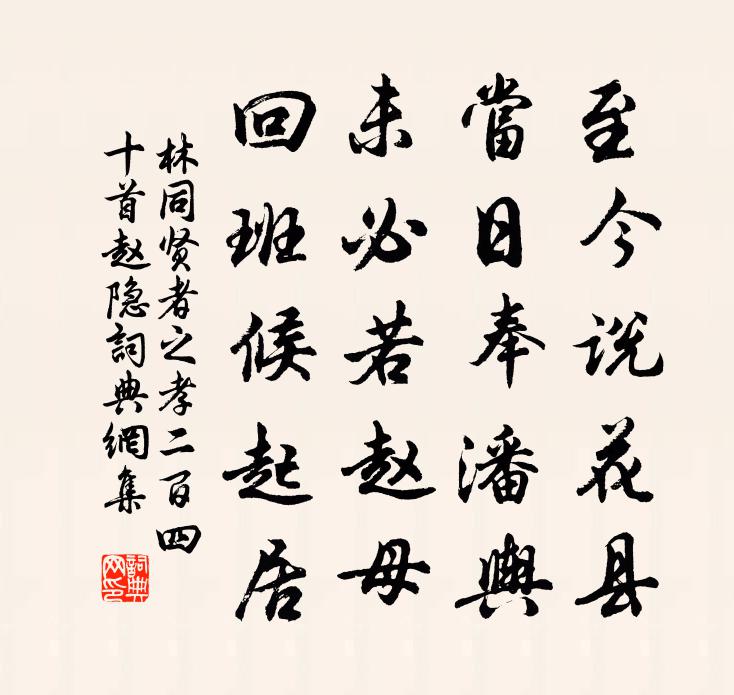 至今说花县
當日奉潘輿
未必若赵母
回班候起居
林同贤者之孝二百四
十首赵隐詞典網集
詞典
网印